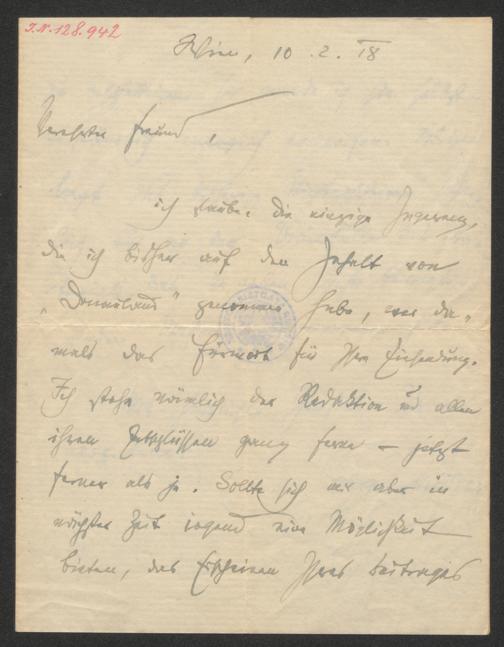 I.N. 128.942
Wien, 10. 2. 18
Verehrter Freund,
ich glaube, die einzige Ingerenz,
die ich bisher auf den Inhalt von
„Donauland" genommen habe, war da-
mals das Fürwort für Ihre Einsendung.
Ich stehe nämlich der Redaktion und allen
ihren Entschlüssen ganz ferne – jetzt
ferner als je. Sollte sich mir aber in
nächster Zeit irgend eine Möglichkeit
bieten, das Erscheinen Ihres Beitrages